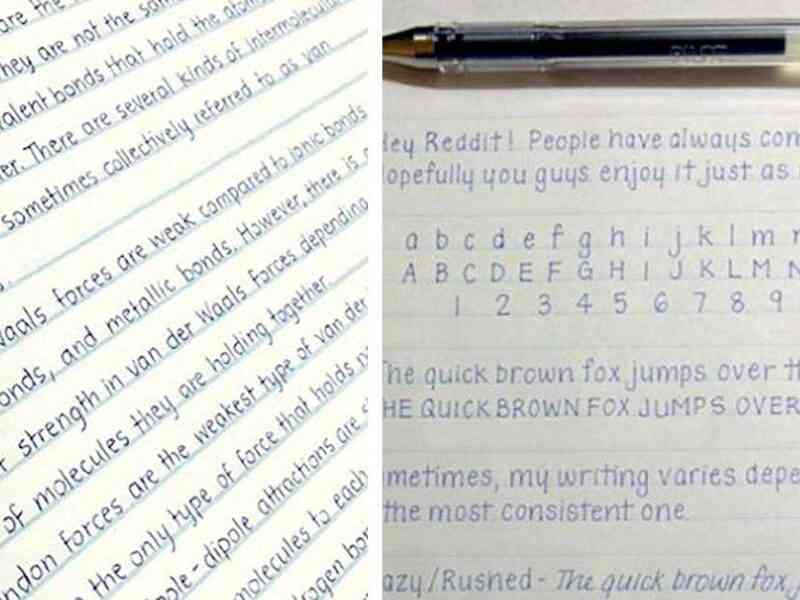 are the
they are not the same
valent bonds that hold the atoms
er. There are several kinds of intermolecular
sometimes collectively referred to as van
Waals forces are weak compared to ionic bonds
onds, and metallic bonds. However, there is
r strength in van der Waals forces depending
of molecules they are holding together.
ndon forces are the weakest type of van der
the only type of force that holds
pole-dipole attractions are
molecules to each
drogen bon
PILOT
Hey Reddit! People have always com
Hopefully you guys enjoy it just as
a b c d e f g h i j k l m n
A B C D E F G H I J K L M N
1 2 3 4 5 6 7 8 9
The quick brown fox jumps over th
HE QUICK BROWN FOX JUMPS OVER
metimes, my writing varies depe
the most consistent one.
azy/Rushed - The quick brown fox j